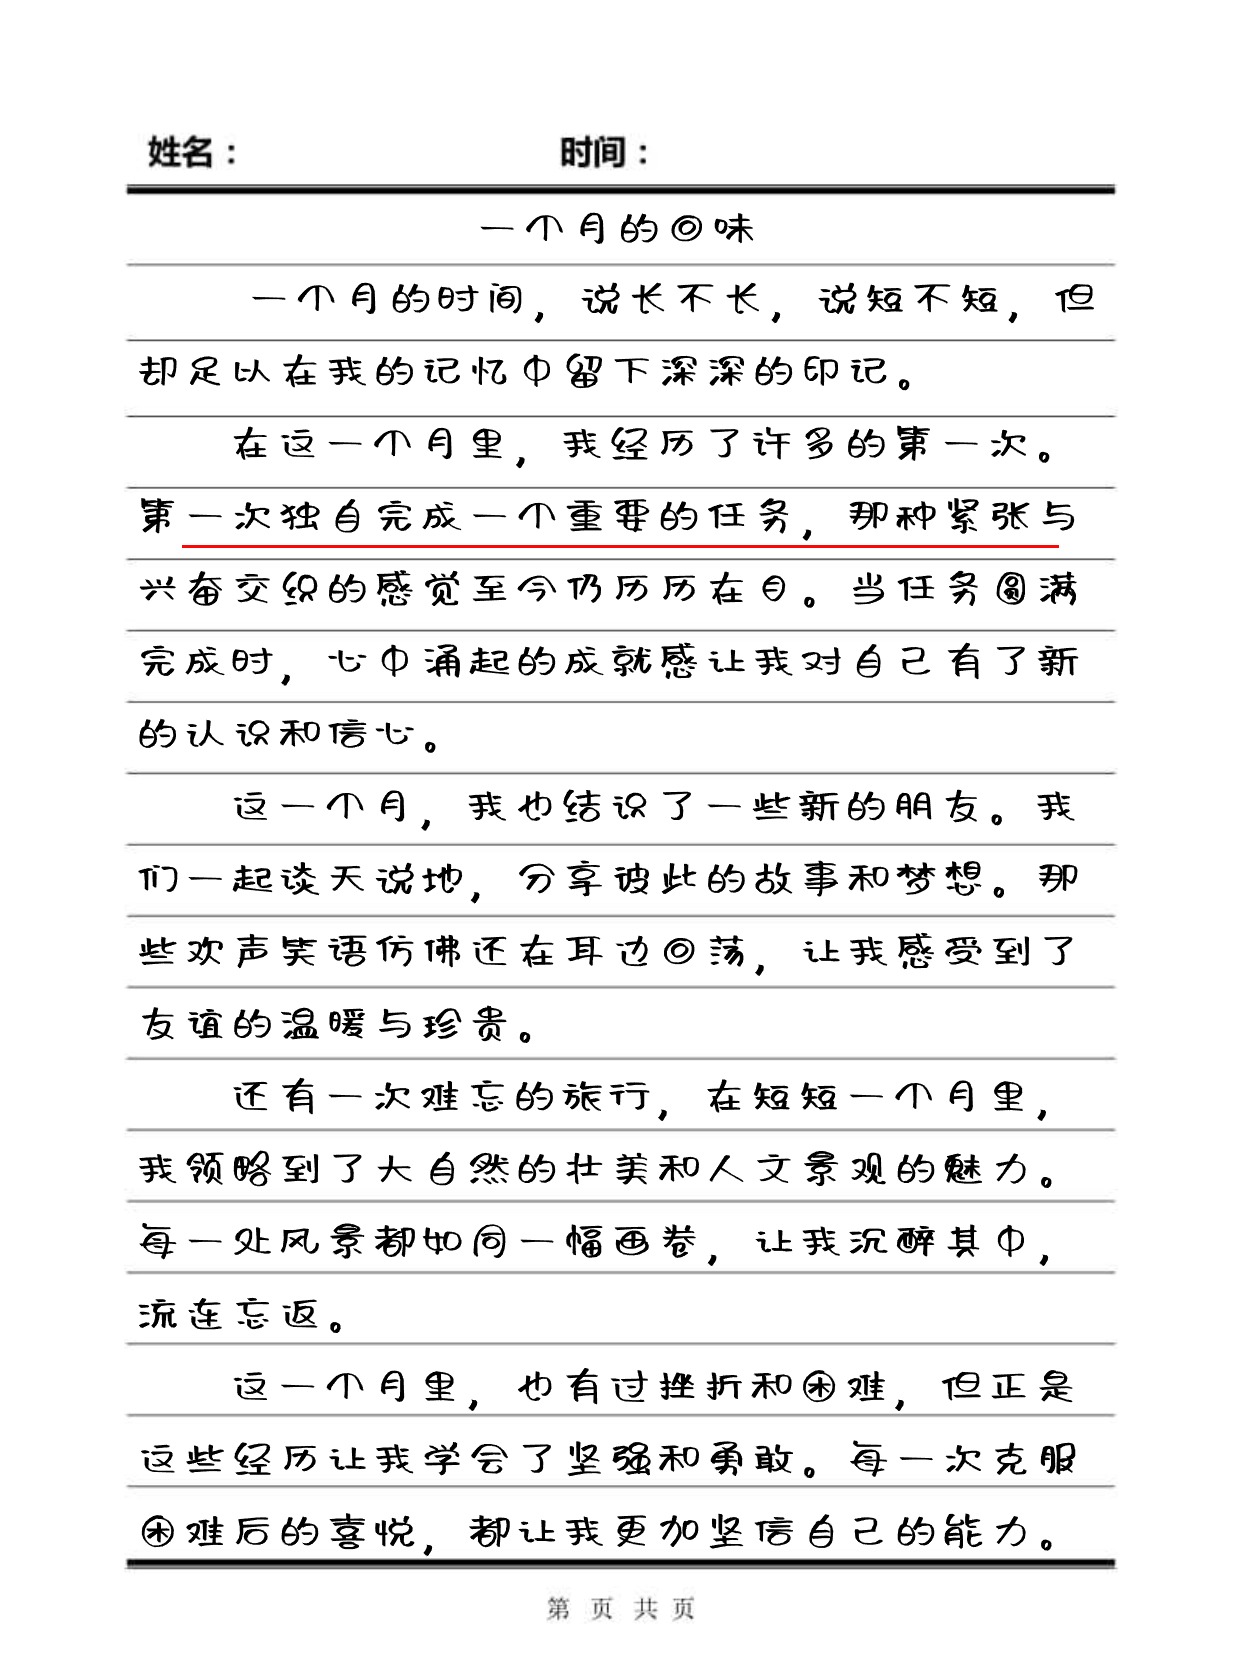 姓名： 时间：
一个月的回味
一个月的时间，说长不长，说短不短，但
却足以在我的记忆中留下深深的印记。
在这一个月里，我经历了许多的第一次。
第一次独自完成一个重要的任务，那种紧张与
兴奋交织的感觉至今仍历历在目。当任务圆满
完成时，心中涌起的成就感让我对自己有了新
的认识和信心。
这一个月，我也结识了一些新的朋友。我
们一起谈天说地，分享彼此的故事和梦想。那
些欢声笑语仿佛还在耳边回荡，让我感受到了
友谊的温暖与珍贵。
还有一次难忘的旅行，在短短一个月里，
我领略到了大自然的壮美和人文景观的魅力。
每一处风景都如同一幅画卷，让我沉醉其中，
流连忘返。
这一个月里，也有过挫折和困难，但正是
这些经历让我学会了坚强和勇敢。每一次克服
困难后的喜悦，都让我更加坚信自己的能力。
第 页 共 页